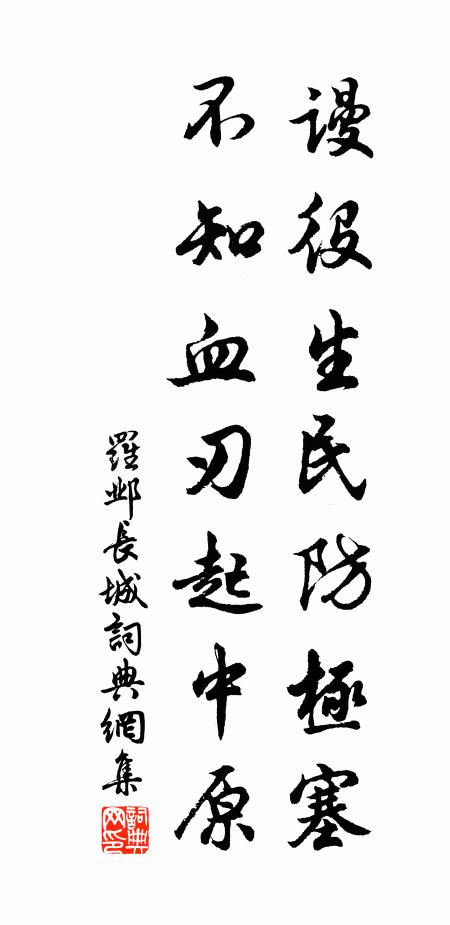 謾役生民防極塞
不知血刃起中原
羅鄴長城詞典網集
詞典
网印